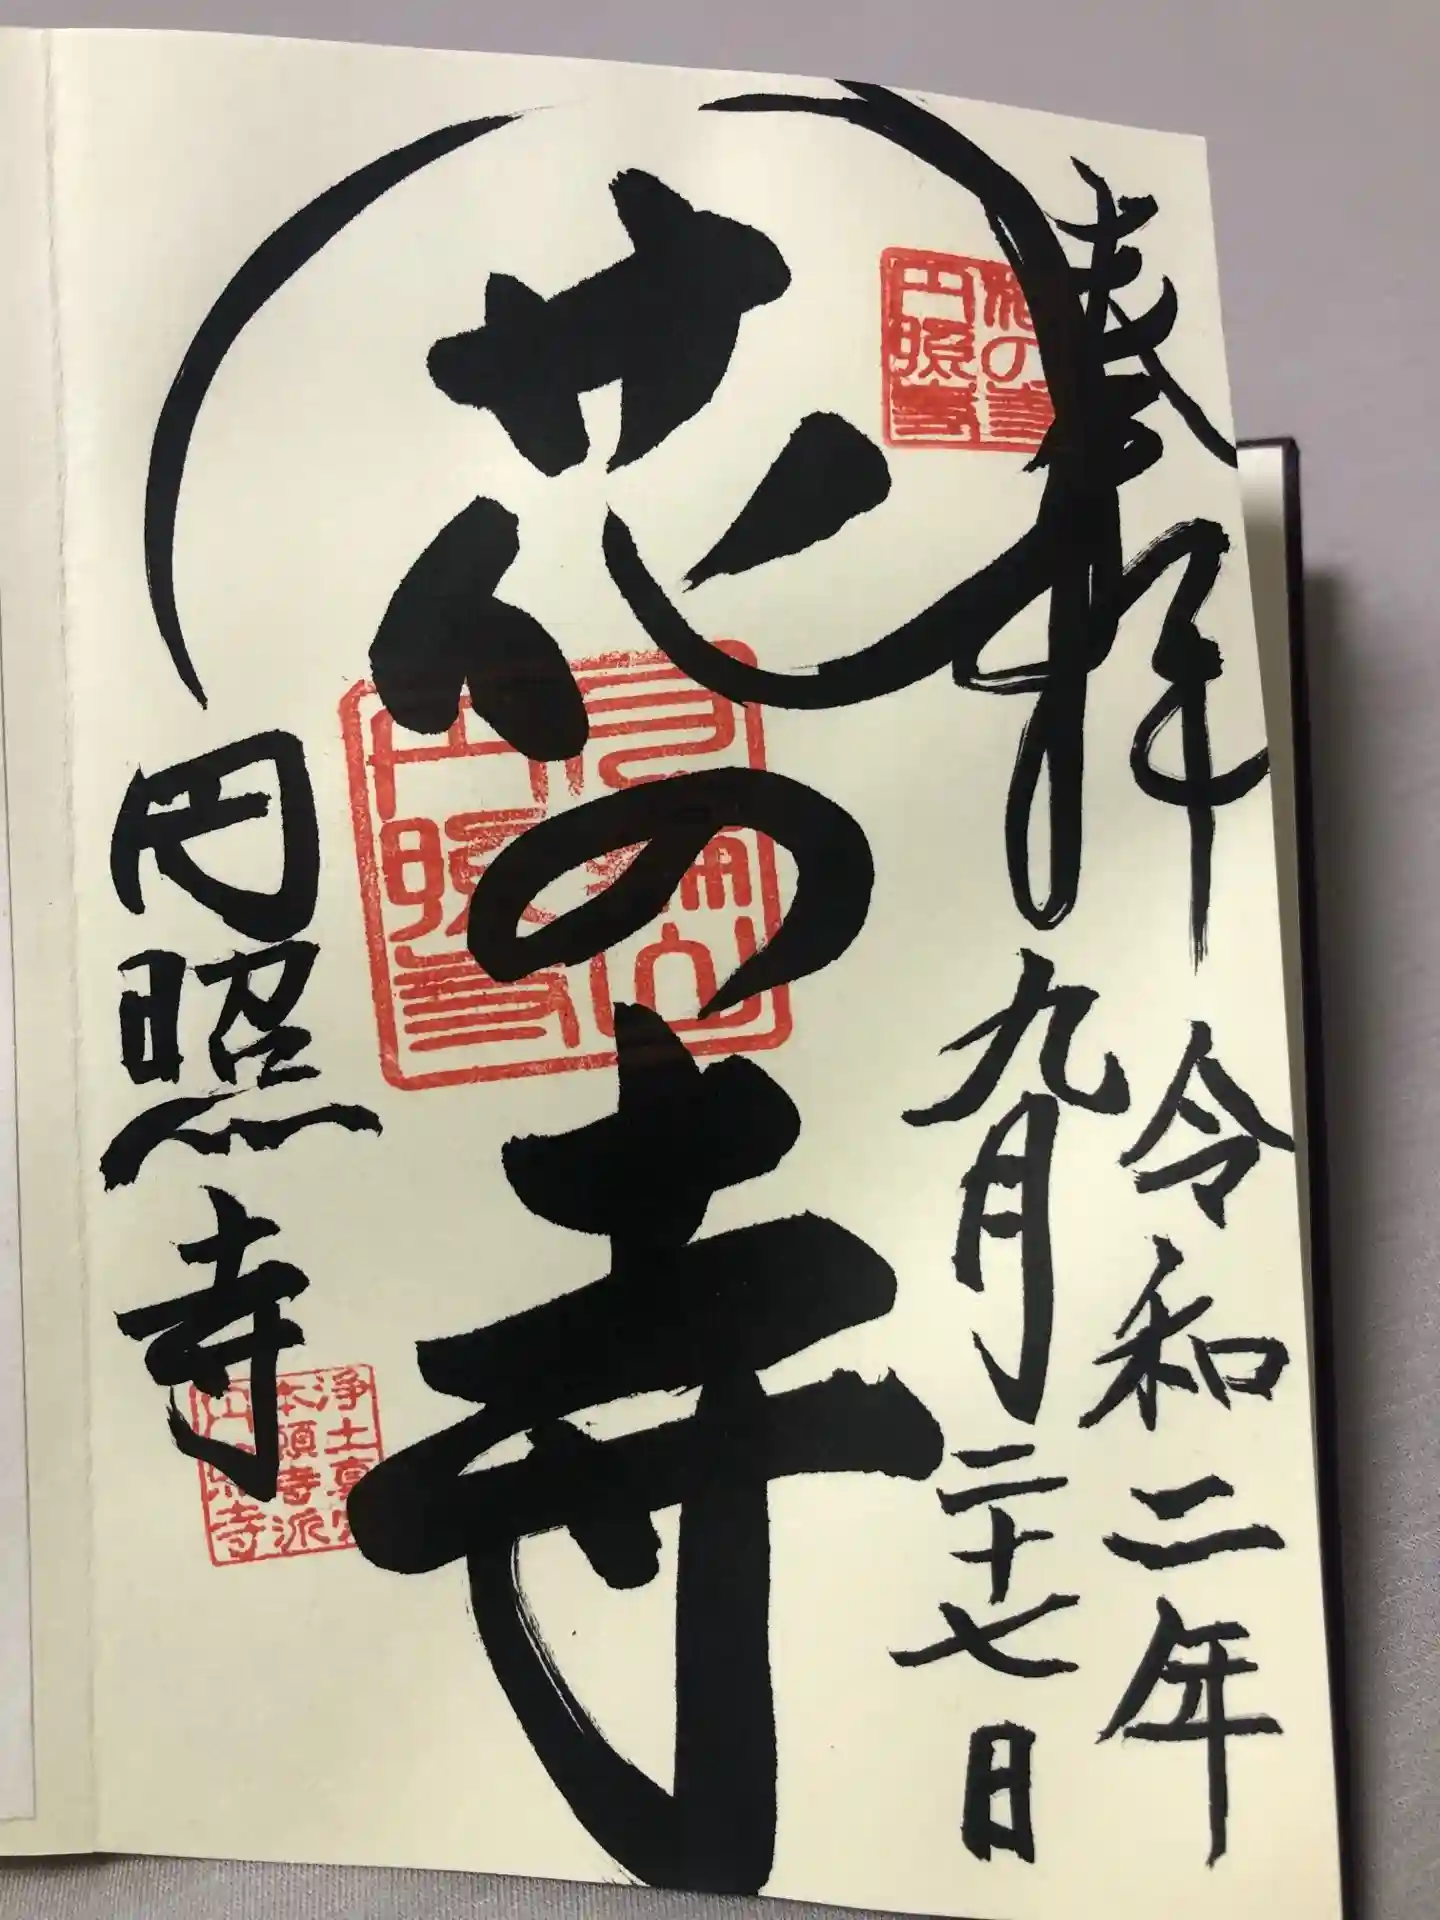 奉拝
令和二年
九月二十七日
花の寺
円照寺
花の寺
円照寺
円照寺
浄土真宗
本願寺派
円照寺